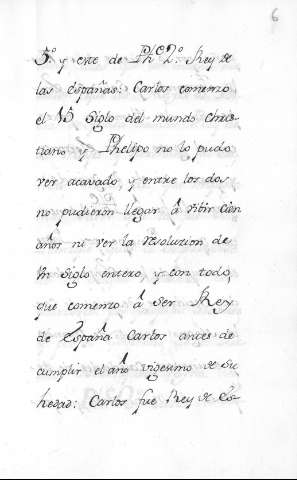 6
5.º y este de Ph.º 2.º Rey de
las españas: Carlos comenzo
el Siglo del mundo chris-
tiano y Phelipo no lo pudo
ver acavado, y entre los dos
no pudieron llegar â vivir cien
años ni ver la resoluzion de
Un siglo entero, y con todo,
que comenzo â ser Rey
de España Carlos antes de
cumplir el año vigesimo de su
hedad: Carlos fue Rey de Es-